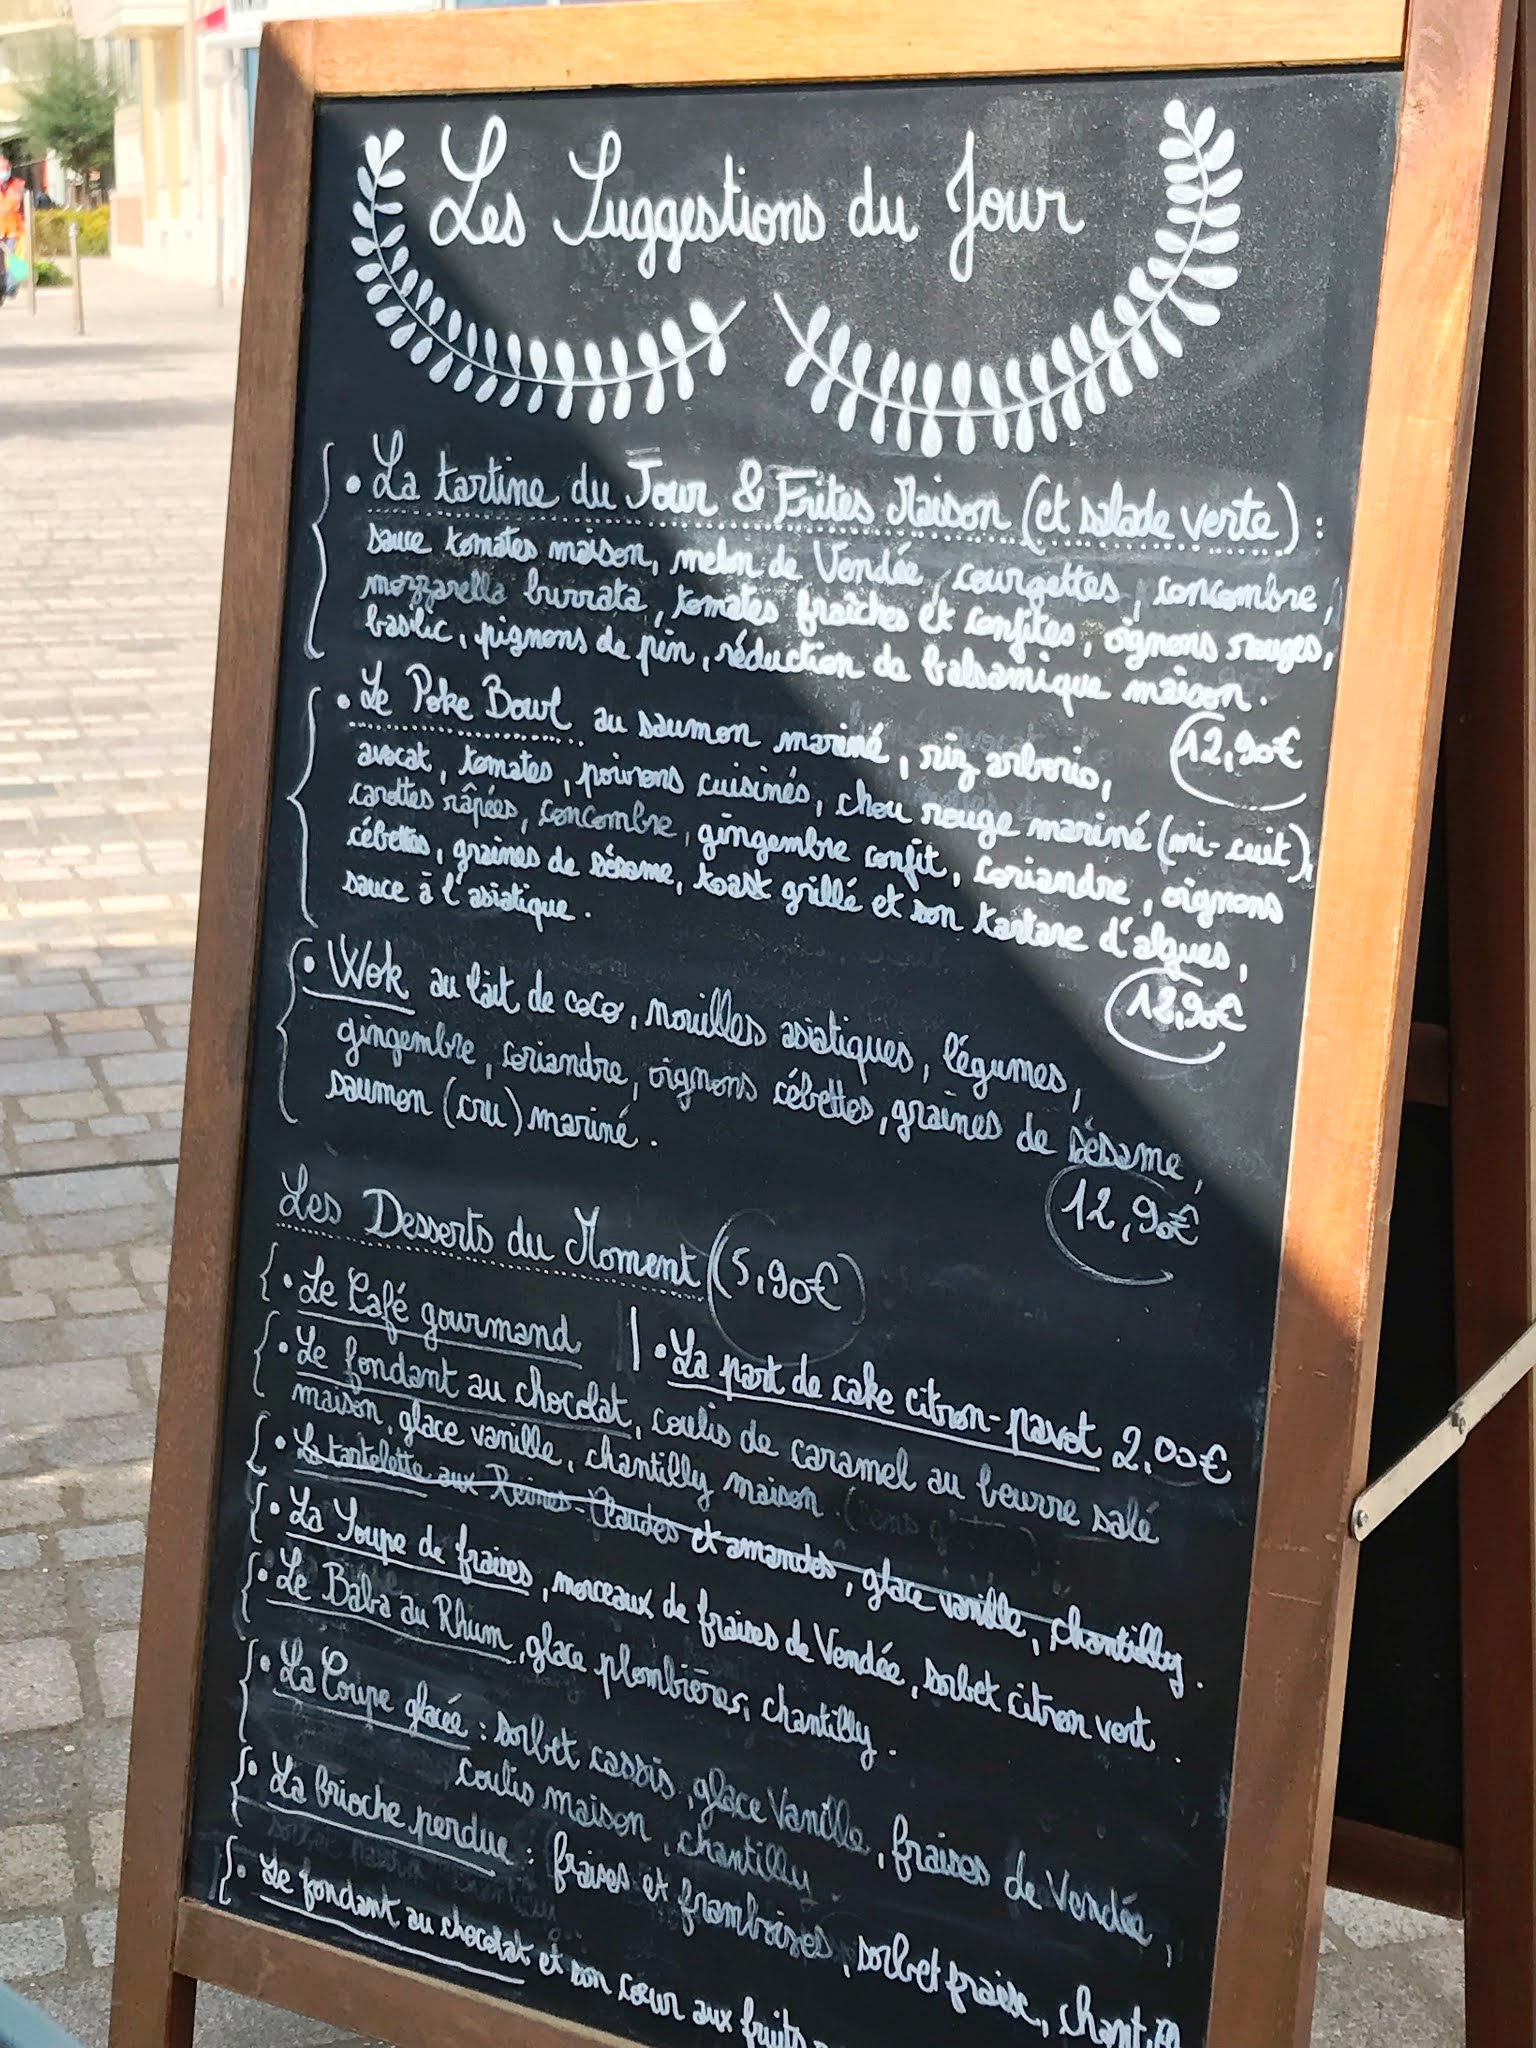 Les Suggestions du Jour
• La tartine du Jour & Frites Maison (et salade verte) :
sauce tomates maison, melon de Vendée, courgettes, concombre,
mozzarella burrata, tomates fraîches et confites, oignons rouges,
basilic, pignons de pin, réduction de balsamique maison.
12,90€
• Le Poke Bowl au saumon mariné, riz arborio,
avocat, tomates, poivrons cuisinés, chou rouge mariné (mi-cuit),
carottes râpées, concombre, gingembre confit, coriandre, oignons
cébettes, graines de sésame, toast grillé et son tartare d'algues,
sauce à l'asiatique.
12,90€
• Wok au lait de coco, nouilles asiatiques, légumes,
gingembre, coriandre, oignons cébettes, graines de sésame,
saumon (cru) mariné.
12,90€
Les Desserts du Moment (5,90€)
• Le Café gourmand | • La part de cake citron-pavot 2,00€
• Le fondant au chocolat, coulis de caramel au beurre salé
maison, glace vanille, chantilly maison.
• La tartelette aux Reines-Claudes et amandes, glace vanille, chantilly.
• La Soupe de fraises, morceaux de fraises de Vendée, sorbet citron vert.
• Le Baba au Rhum, glace plombières, chantilly.
• La Coupe glacée : sorbet cassis, glace Vanille, fraises de Vendée,
coulis maison, chantilly.
• La brioche perdue : fraises et framboises, sorbet fraise,
• Le fondant au chocolat et son cœur aux fruits